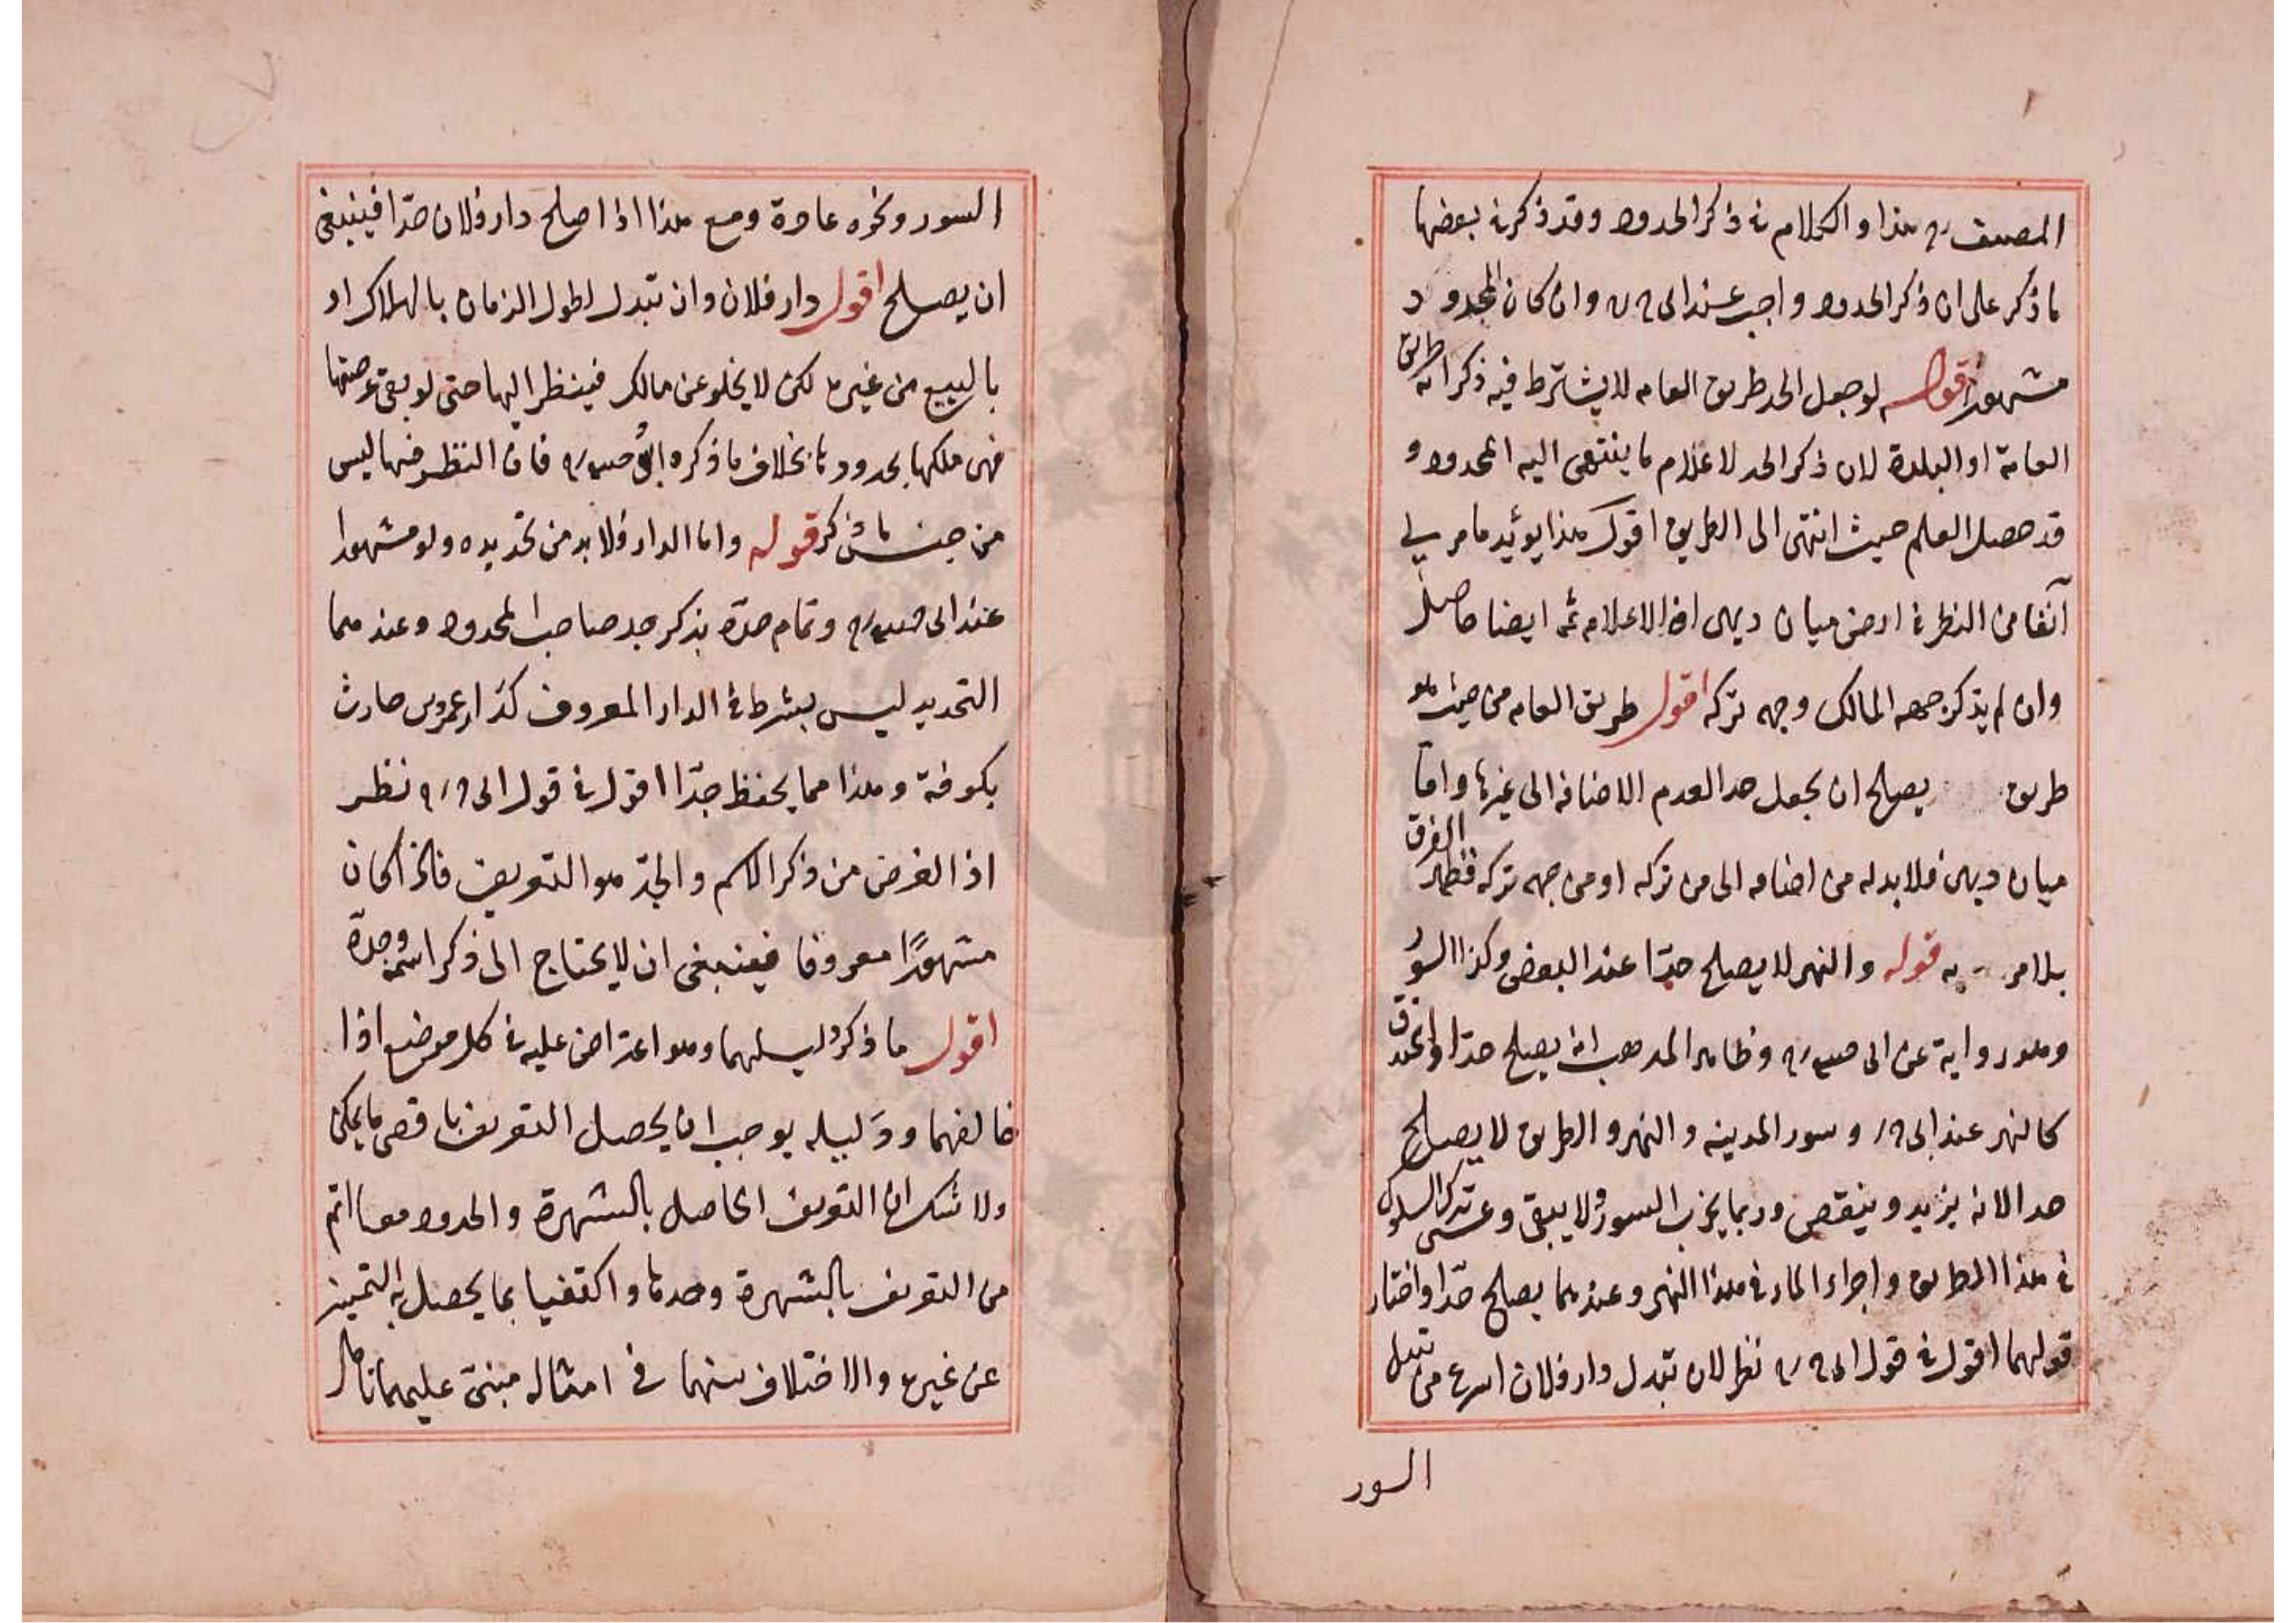 المصنف رح هذا والكلام في ذكر الحدود وقد ذكر في بعضها
ما ذكر على ان ذكر الحدود واجب عند ابى ح رح وان كان المحدود
مشهورا قوله لو جعل الحد طريق العامه لا يشترط فيه ذكر انه طريق
العامة او البلدة لان ذكر الحد لاعلام ما ينتهى اليه المحدود و
قد حصل العلم حيث انتهى الى الطريق اقول هذا يؤيد ما مر لي
آنفا من النظر في ارض ميان ديهى اذ الاعلام ثمه ايضا حاصل
وان لم يذكر جهه المالك وجهه تركه اقول طريق العامه من حيث هو
طريق يصلح ان يجعل حد العدم الاضافه الى غيرها واما
ميان ديهى فلا بد له من اضافه الى من تركه او من جهه تركه فظهر الفرق
بلا مر به قوله والنهر لا يصلح حدّا عند البعض وكذا السور
وهو رواية عن ابى حنيفه رح وظاهر المذهب انه يصلح حدّا والخندق
كالنهر عند ابى ح رح وسور المدينه والنهر والطريق لا يصلح
حد الانه يزيد وينقص وربما يخرب السور ولا يبقى وعسى يترك السلوك
في هذا الطريق واجراء الماء في هذا النهر وعندهما يصلح حدّا واختار
قولهما اقول في قول ابى ح رح نظر لان تبدل دار فلان اسرع من تبدل
السور
السور ونحوه عادة ومع هذا اذا صلح دار فلان حدّا فينبغى
ان يصلح اقول دار فلان وان تبدل لطول الزمان بالهلاك او
بالبيع من غيره لكن لا يخلو عن مالك فينظر اليها حتى لو بقى عرصتها
فهى ملكها بحدودها بخلاف ما ذكره ابو حنيفه رح فان النظر فيها ليس
من جنس ما ذكر قوله واما الدار فلا بد من تحديده ولو مشهورا
عند ابى حنيفه رح وتمام حدّه بذكر جد صاحب المحدود وعندهما
التحديد ليس بشرط في الدار المعروف كدار عمرو بن حارث
بكوفة وهذا مما يحفظ جدّا اقول في قول ابى ح رح نظر
اذ الغرض من ذكر الاسم والجدّ هو التعريف فاذا كان
مشهورًا معروفا فينبغى ان لا يحتاج الى ذكر اسمه وجدّه
اقول ما ذكر دليلهما وهو اعتراض عليه في كل موضع اذا
خالفهما ودَليله يوجب ان يحصل التعريف باقصى ما يمكن
ولا شك ان التعريف الحاصل بالشهرة والحدود معا اتم
من التعريف بالشهرة وحدها واكتفيا بما يحصل به التمييز
عن غيره والاختلاف بينهما في امثاله مبنىّ عليهما تامل